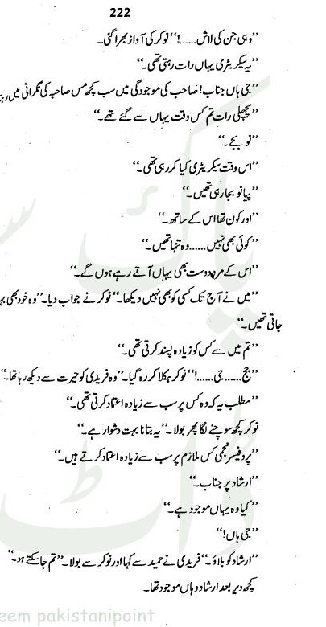 222
"وہی جن کی لاش......!" نوکر کی آواز بھرا گئی۔
"یہ سیکریٹری یہاں رات رہتی تھی۔"
"جی ہاں جناب! صاحب کی موجودگی میں سب کچھ مس صاحبہ کی نگرانی میں
"پچھلی رات تم کس وقت یہاں سے گئے تھے۔"
"نو بجے۔"
"اس وقت سیکریٹری کیا کر رہی تھی۔"
"پیانو بجا رہی تھیں۔"
"اور کون تھا اس کے ساتھ۔"
"کوئی بھی نہیں......وہ تنہا تھیں۔"
"اس کے مرد دوست بھی یہاں آتے رہے ہوں گے۔"
"میں نے آج تک کسی کو بھی نہیں دیکھا۔" نوکر نے جواب دیا۔ "وہ خود بھی
جاتی تھیں۔"
"تم میں سے کس کو زیادہ پسند کرتی تھی۔"
"جج......جی......!" نوکر ہکلا کر رہ گیا۔ "وہ فریدی کو حیرت سے دیکھ رہا تھا۔"
"مطلب یہ کہ وہ کس پر سب سے زیادہ اعتماد کرتی تھی۔"
نوکر کچھ سوچنے لگا پھر بولا۔ "یہ بتانا بہت دشوار ہے۔"
"پروفیسر نجمی کس ملازم پر سب سے زیادہ اعتماد کرتے ہیں۔"
"ارشاد پر جناب۔"
"کیا وہ یہاں موجود ہے۔"
"جی ہاں!"
"ارشاد کو بلاؤ۔" فریدی نے حمید سے کہا اور نوکر سے بولا۔ "تم جا سکتے ہو۔"
کچھ دیر بعد ارشاد وہاں موجود تھا۔
eem pakistanipoint